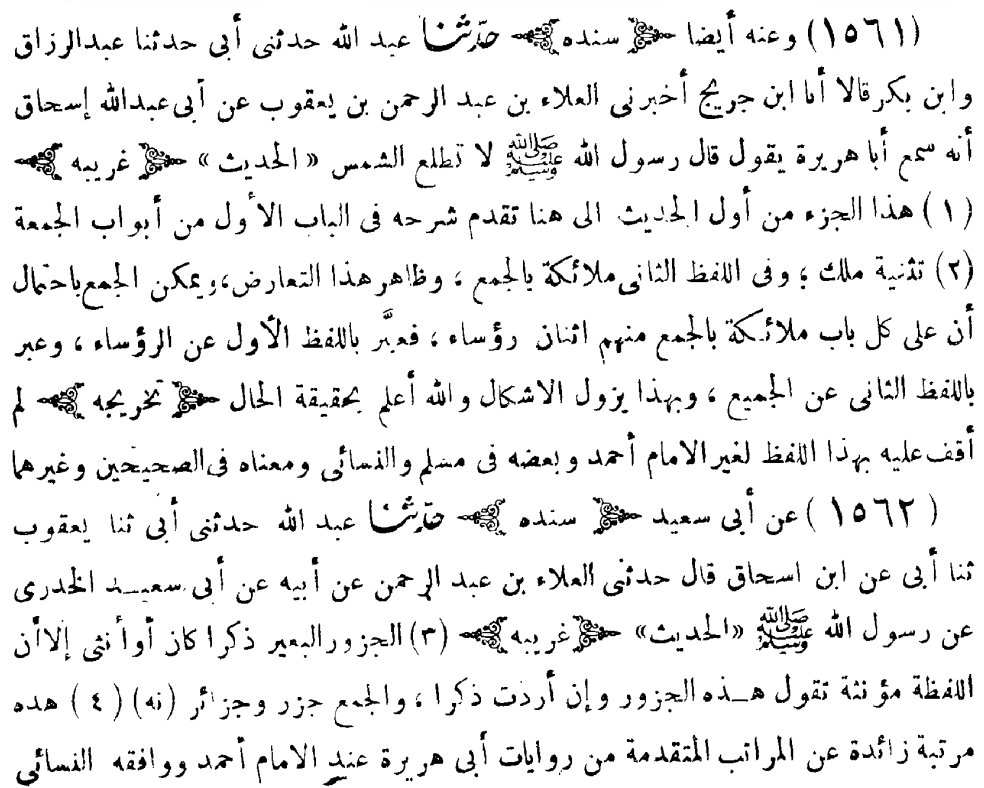 (١٥٦١) وعنه أيضا ﴿ سنده ﴾ حدثنا عبد الله حدثنى أبى حدثنا عبدالرزاق
وابن بكر قالا أنا ابن جريج أخبرنى العلاء بن عبد الرحمن بن يعقوب عن أبى عبدالله إسحاق
أنه سمع أبا هريرة يقول قال رسول الله ﷺ لا تطلع الشمس « الحديث » ﴿ غريبه ﴾
(١) هذا الجزء من أول الحديث الى هنا تقدم شرحه فى الباب الأول من أبواب الجمعة
(٢) تثنية ملك ؛ وفى اللفظ الثانى ملائكة بالجمع ، وظاهر هذا التعارض، ويمكن الجمع باحتمال
أن على كل باب ملائكة بالجمع منهم اثنان رؤساء ، فعبَّر باللفظ الأول عن الرؤساء ، وعبر
باللفظ الثانى عن الجميع ، وبهذا يزول الاشكال والله أعلم بحقيقة الحال ﴿ تخريجه ﴾ لم
أقف عليه بهذا اللفظ لغير الامام أحمد وبعضه فى مسلم والنسائى ومعناه فى الصحيحين وغيرهما
(١٥٦٢) عن أبى سعيد ﴿ سنده ﴾ حدثنا عبد الله حدثنى أبى ثنا يعقوب
ثنا أبى عن ابن اسحاق قال حدثنى العلاء بن عبد الرحمن عن أبيه عن أبى سعيد الخدرى
عن رسول الله ﷺ «الحديث» ﴿ غريبه ﴾ (٣) الجزور البعير ذكرا كان أو أنثى إلا أن
اللفظة مؤنثة تقول هذه الجزور وإن أردت ذكرا ، والجمع جزر وجزائر (نه) (٤) هده
مرتبة زائدة عن المراتب المتقدمة من روايات أبى هريرة عند الامام أحمد ووافقه النسائى